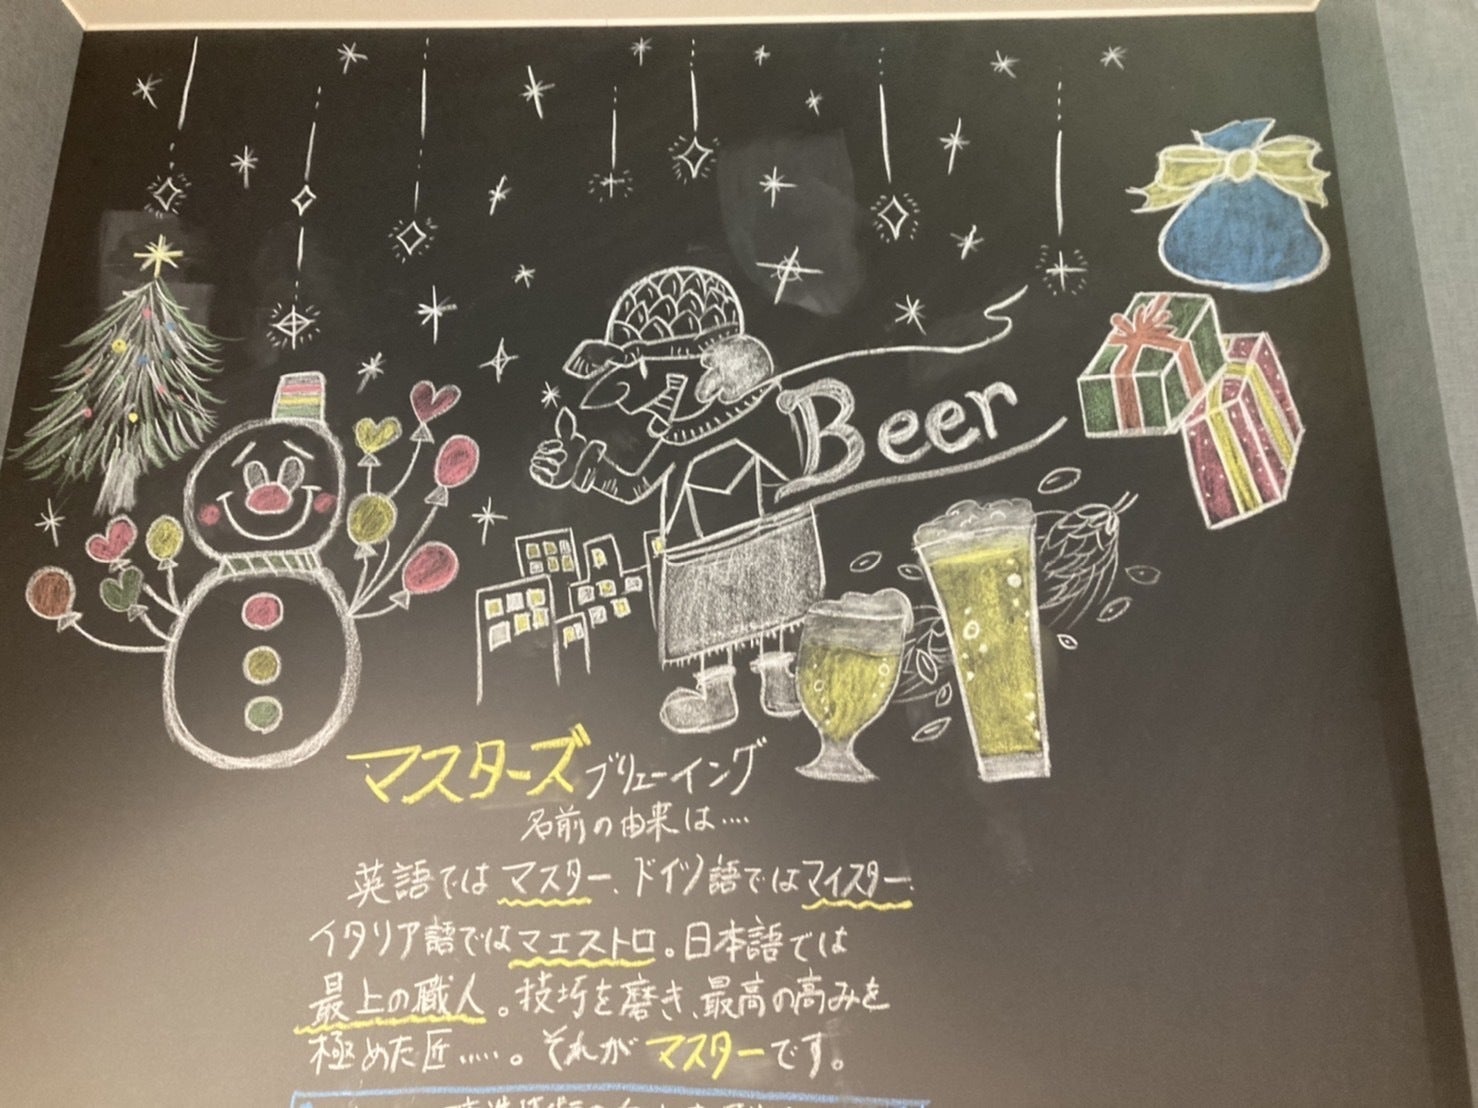 Beer
マスターズブリューイング
名前の由来は‥‥
英語ではマスター、ドイツ語ではマイスター、
イタリア語ではマエストロ。日本語では
最上の職人。技巧を磨き、最高の高みを
極めた匠‥‥。それがマスターです。